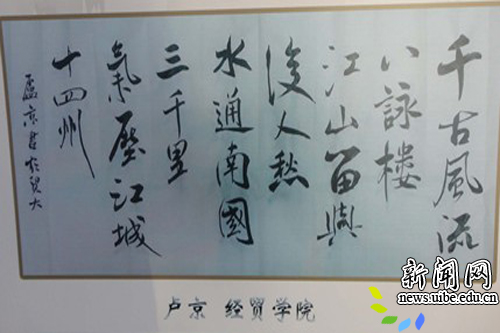 千古風流
八詠樓
江山留與
後人愁
水通南國
三千里
氣壓江城
十四州
盧京書於貿大
卢京 经贸学院
新闻网
news.uibe.edu.cn